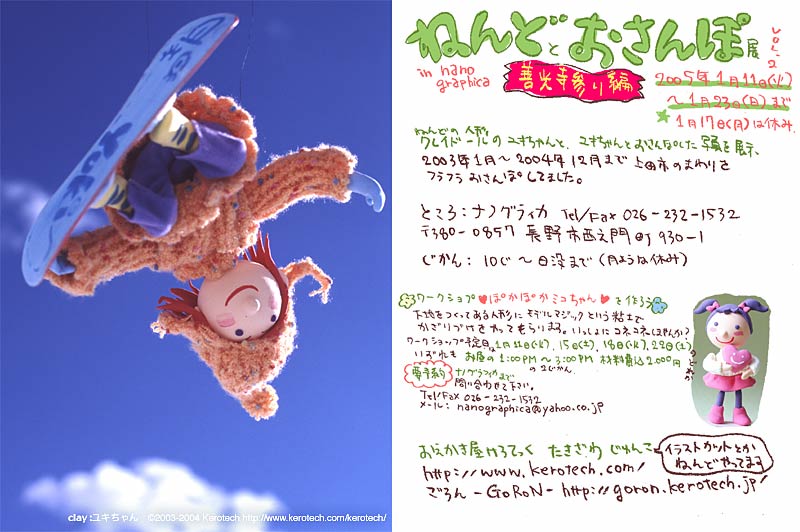 ねんどとおさんぽ展 vol.2
in nano graphica
善光寺参り編
2005年1月11日(火)
〜1月23日(日)まで
1月17日(月)は休み
ねんどの人形
クレイドールのユキちゃんと、ユキちゃんとおさんぽした写真を展示。
2003年1月〜2004年12月まで上田市のまわりを
フラフラおさんぽしてました。
ところ:ナノグラフィカ Tel/Fax 026-232-1532
〒380-0857 長野市西之門町930-1
じかん:10じ〜日没まで(月ようは休み)
ワークショップ♥ぽかぽかミコちゃん♥を作ろう
下地をつくってある人形にモデルマジックという粘土で
かざりつけをやってもらります。いっしょにコネコネしませんか?
ワークショップ予定日は1月11日(火)、15日(土)、18日(火)、22日(土)
いずれもお昼の1:00PM〜3:00PM 材料費込2,000円
の2じかん。
要予約
ナノグラフィカまで
問い合わせ下さい。
Tel/Fax 026-232-1532
メール:nanographica@yahoo.co.jp
おえかき屋けろてっく たきざわ じゅんこ
イラストカットとか
ねんどやってます
http://www.kerotech.com/
ごろん-GoRoN- http://goron.kerotech.jp/
clay :ユキちゃん ©2003-2004 Kerotech http://www.kerotech.com/kerotech/